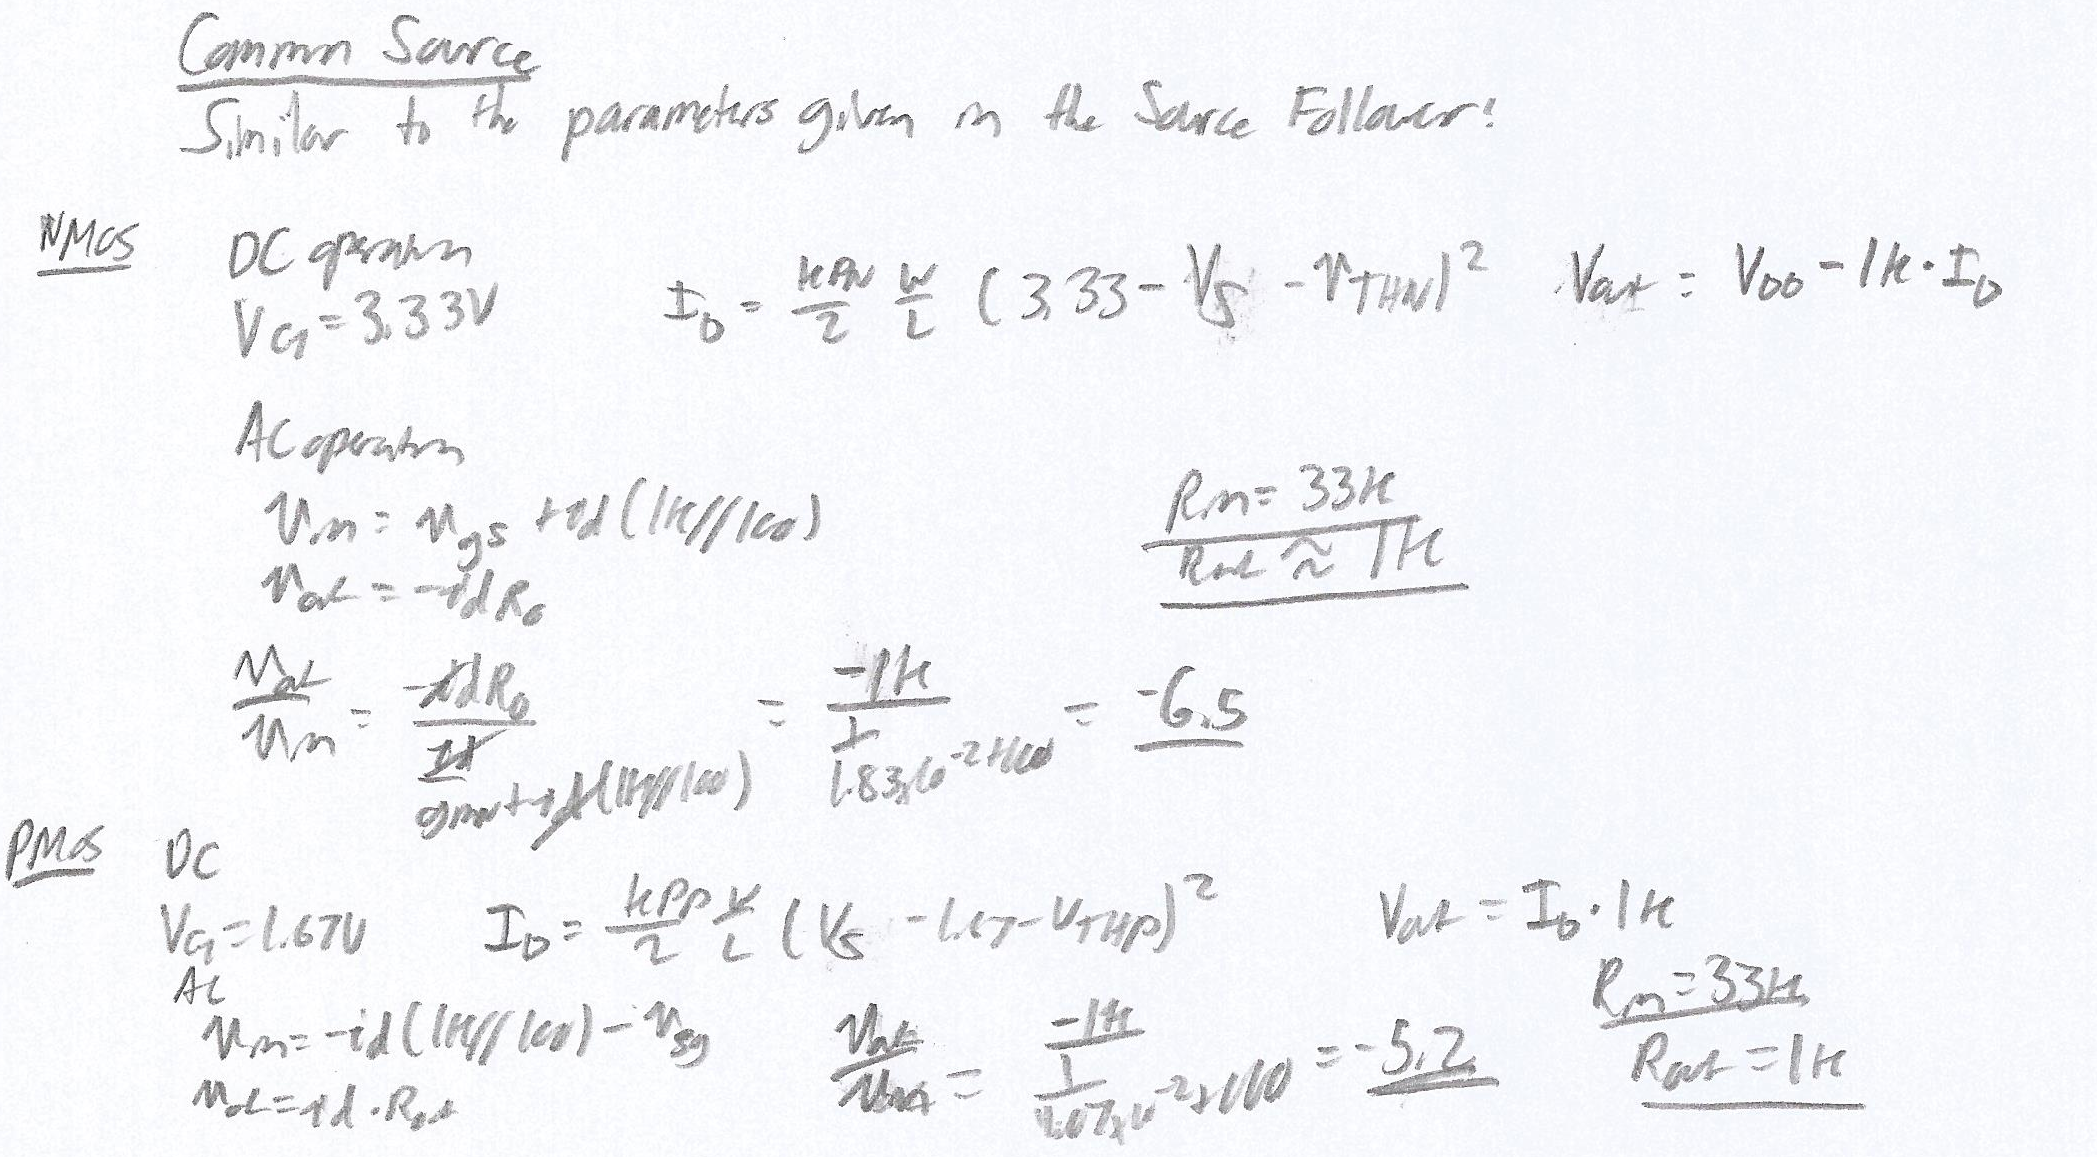 Common Source
Similar to the parameters given in the Source Follower!
NMOS DC operation
V_G = 3.33V I_D = KPN/2 W/L (3.33 - V_S - V_THN)^2 V_out = V_DD - 1k · I_D
AC operation
v_in = v_gs + id(1k//100) R_in = 33k
v_out = -id R_o R_out ≈ 1k
v_out/v_in = -id R_o / (id/gmn + id(1k//100)) = -1k / (1/1.83x10^-2 + 100) = -6.5
PMOS DC
V_G = 1.67V I_D = KPP/2 W/L (V_S - 1.67 - V_THP)^2 V_out = I_D · 1k
AC R_in = 33k
v_in = -id(1k//100) - v_sg v_out/v_in = -1k / (1/1.07x10^-2 + 100) = -5.2 R_out = 1k
v_out = id · R_out